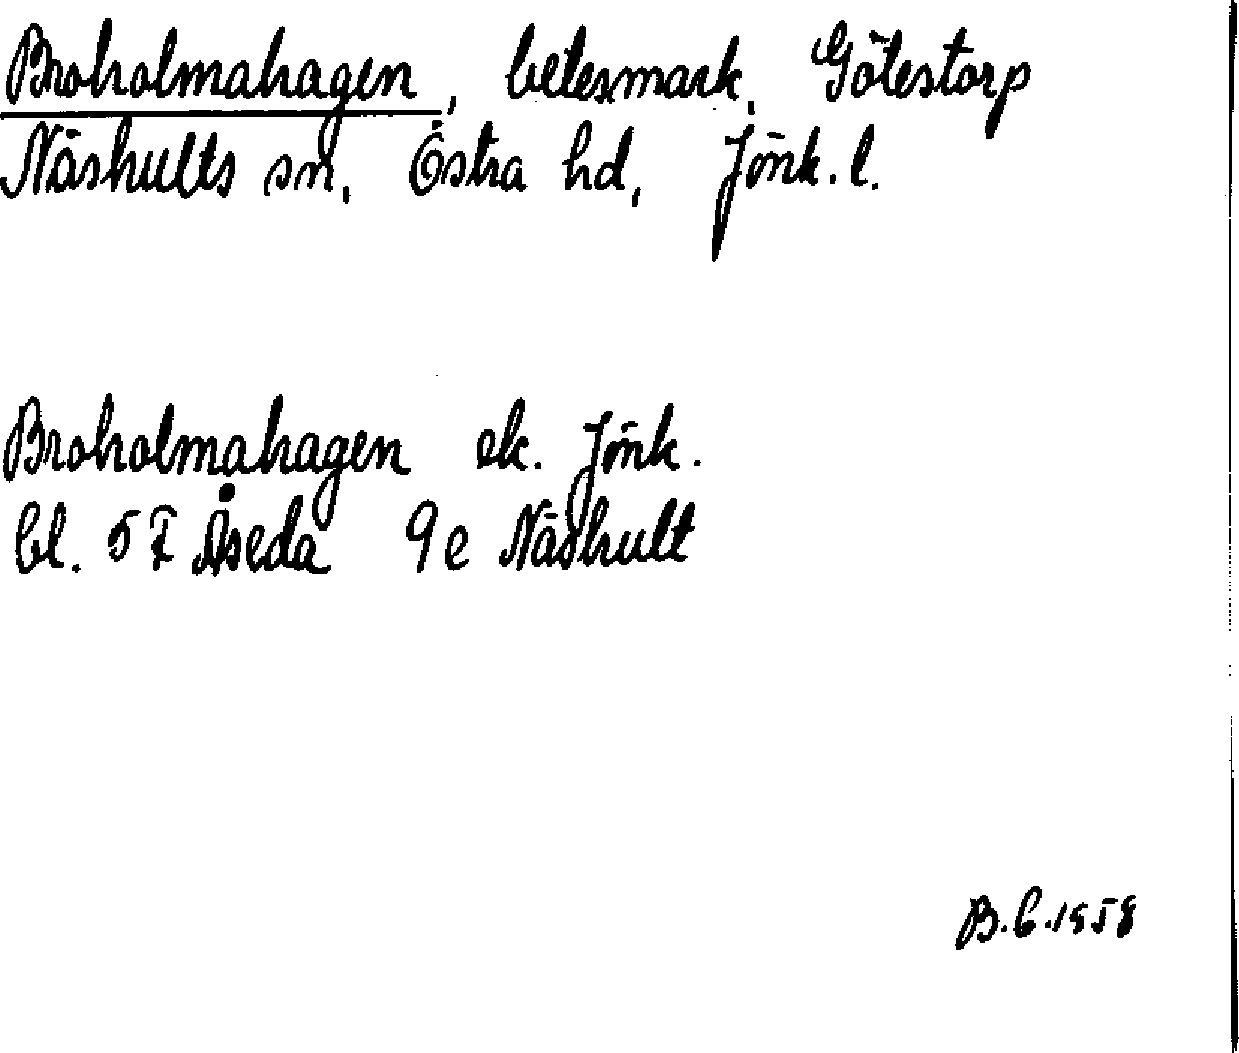 Broholmahagen, betesmark, Götestorp
Näshults sn, Östra hd, Jönk. l.
Broholmahagen ek. Jönk.
bl. 5F Åseda 9e Näshult
B.C.1958